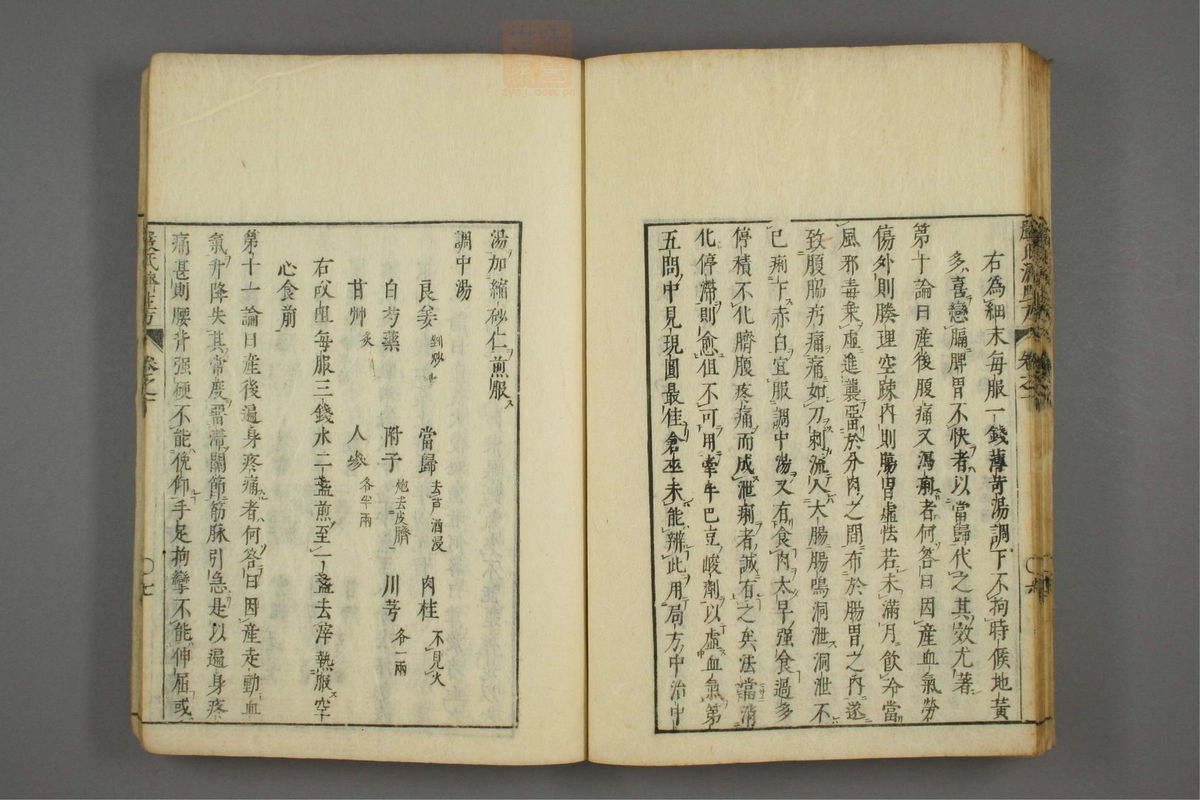 右為細末每服一錢薄苛湯調下不拘時候地黃
多喜戀膈脾胃不快者以當歸代之其效尤著
第十論曰產後腹痛又瀉痢者何答曰因產血氣勞
傷外則腠理空疎內則腸胃虛怯若未滿月飲冷當
風邪毒乘虛進襲留於分肉之間布於腸胃之內遂
致腹脇疠痛痛如刀刺流入大腸腸鳴洞泄洞泄不
已痢下赤白宜服調中湯又有食肉太早强食過多
停積不化臍腹疼痛而成泄痢者誠有之矣法當消
化停滯則愈但不可用牽牛巴豆峻劑以虛血氣第
五問中見現圓最佳倉卒未能辨此用局方中治中
嚴氏濟生方 卷之 七
湯加縮砂仁煎服
調中湯
良姜 剉炒 當歸 去芦酒浸 肉桂 不見火
白芍藥 附子 炮去皮臍 川芎 各一兩
甘艸 炙 人參 各半兩
右㕮咀每服三錢水二盞煎至一盞去滓熱服空
心食前
第十一論曰產後遍身疼痛者何答曰因產走動血
氣升降失其常度留滯關節筋脉引急是以遍身疼
痛甚則腰背强硬不能俛仰手足拘攣不能伸屈或
嚴氏濟生方 卷之 七